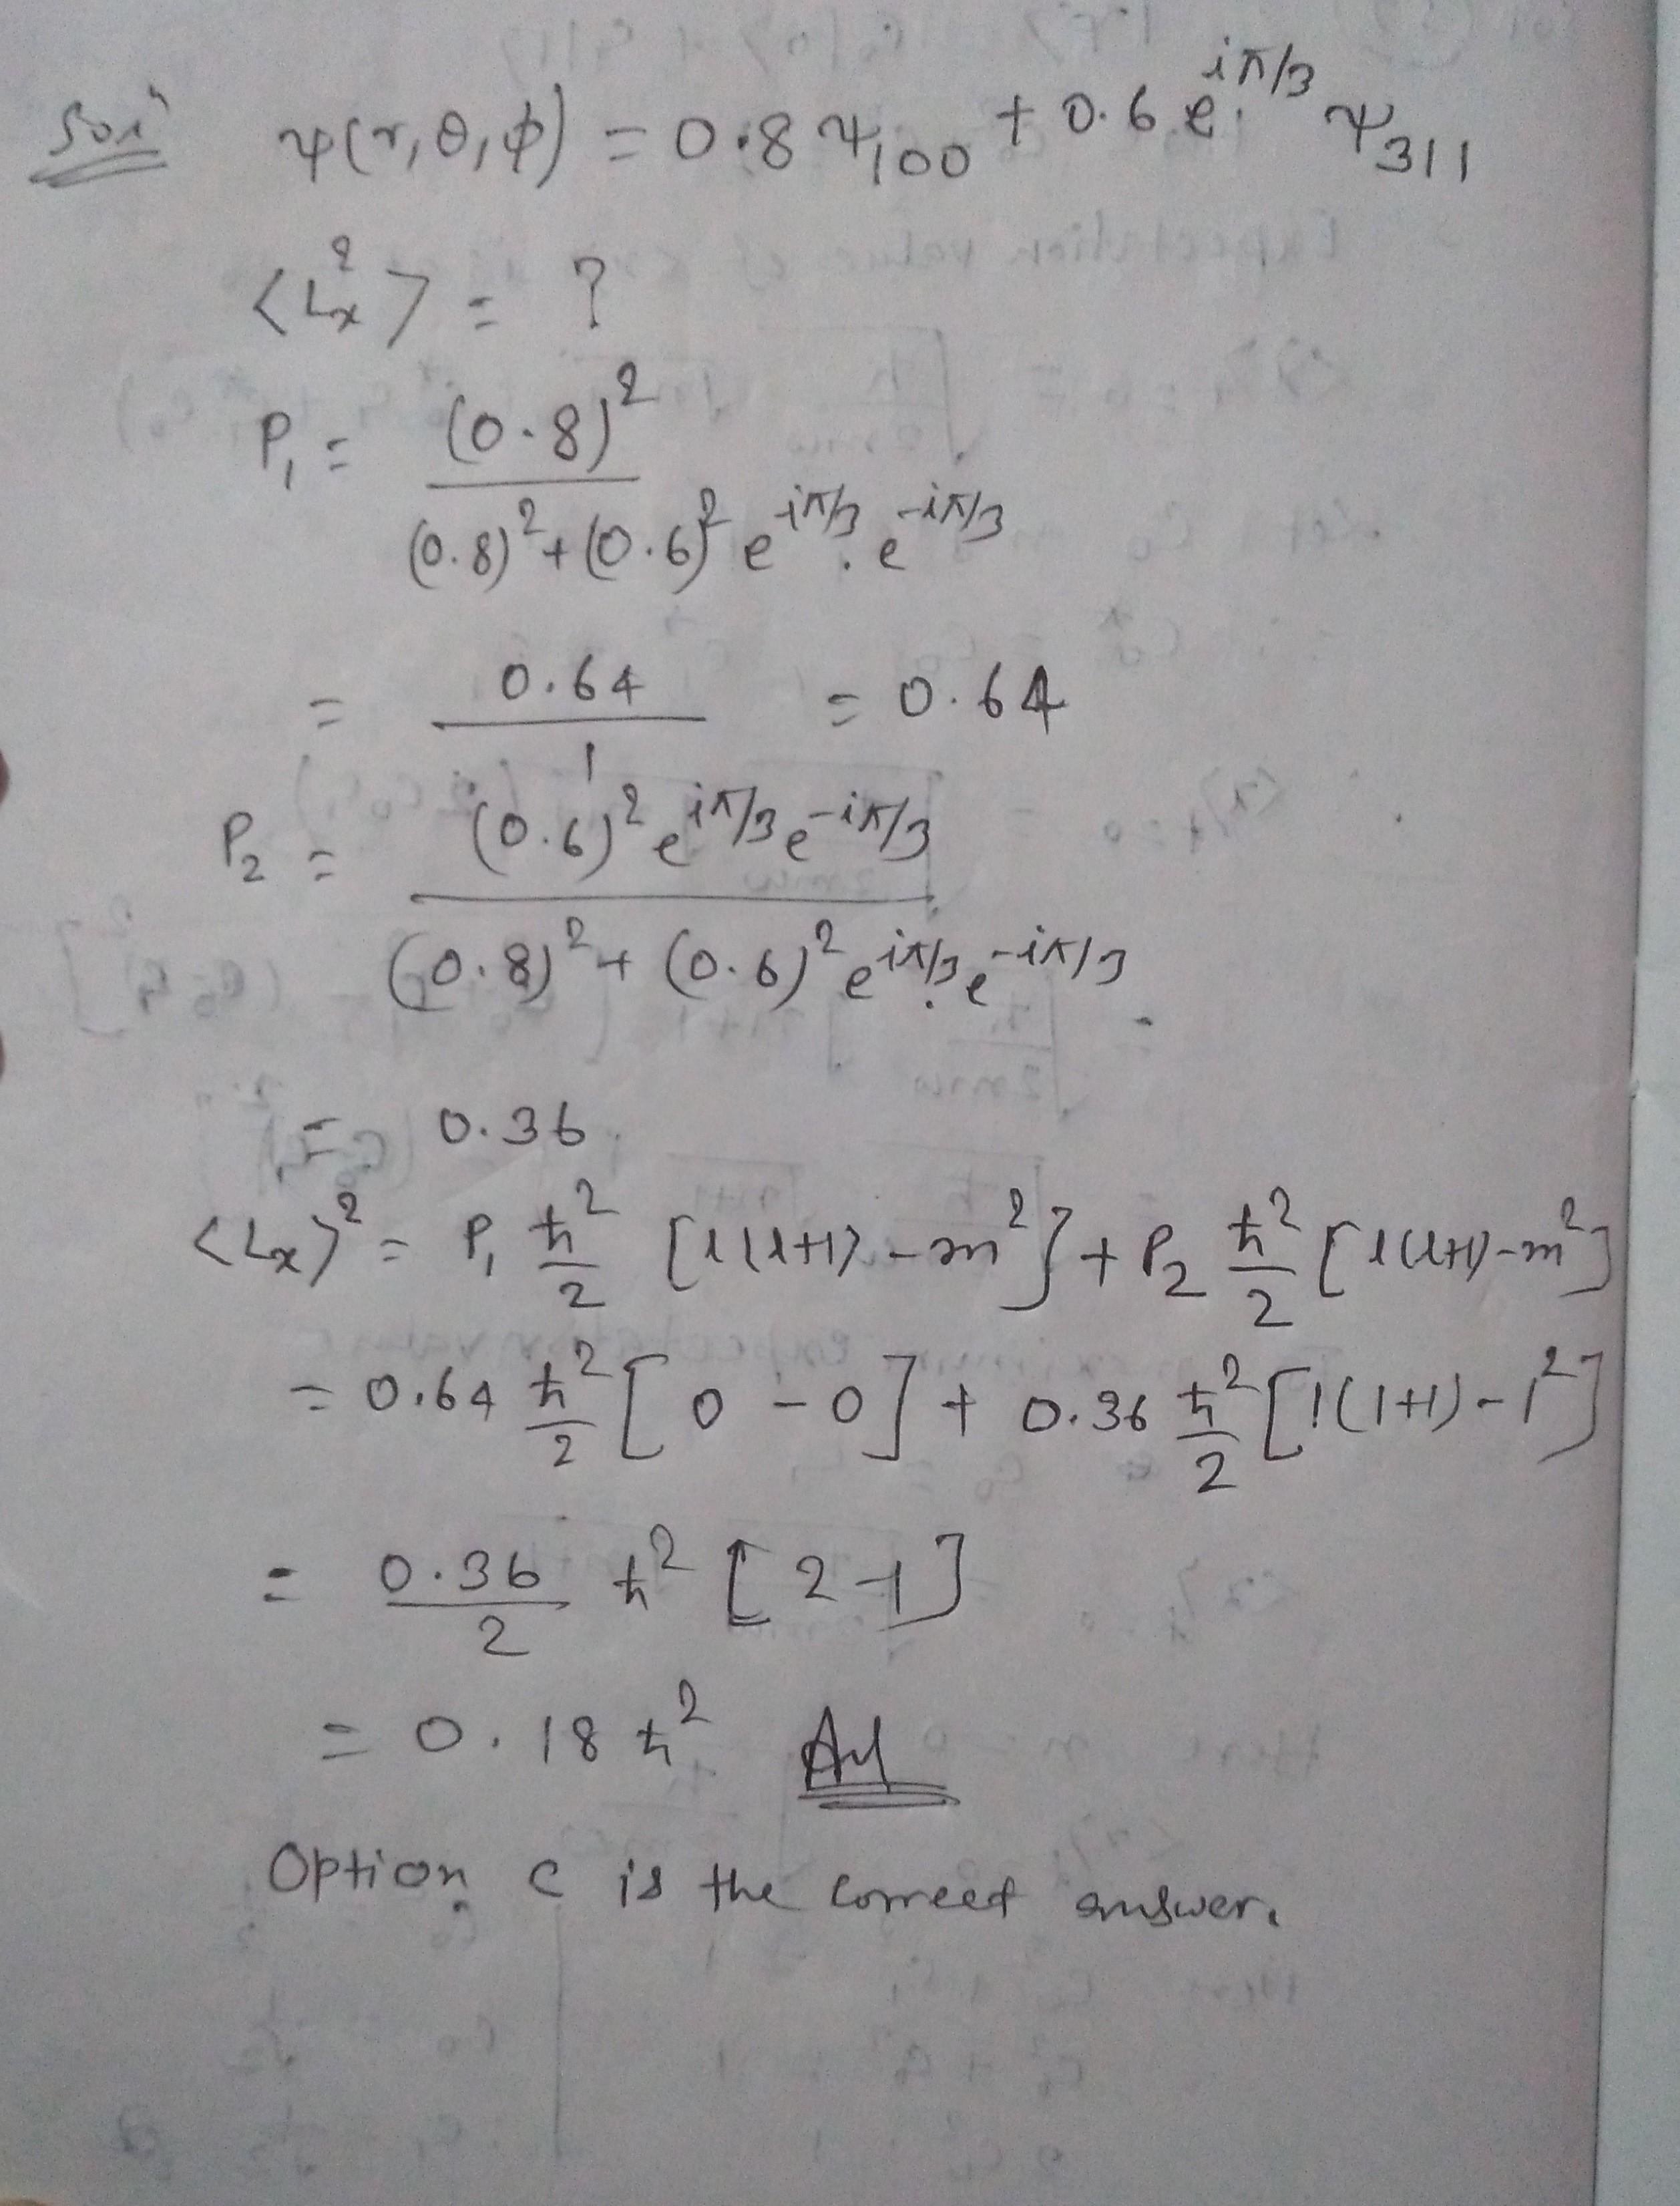 Solⁿ ψ(r,θ,ϕ) = 0.8 ψ₁₀₀ + 0.6 e^{iπ/3} ψ₃₁₁
<Lₓ²> = ?
P₁ = (0.8)² / (0.8)² + (0.6)² e^{iπ/3} . e^{-iπ/3}
= 0.64 / 1 = 0.64
P₂ = (0.6)² e^{iπ/3} e^{-iπ/3} / (0.8)² + (0.6)² e^{iπ/3} . e^{-iπ/3}
= 0.36
<Lₓ>² = P₁ ħ²/2 [l(l+1) - m²] + P₂ ħ²/2 [l(l+1) - m²]
= 0.64 ħ²/2 [0 - 0] + 0.36 ħ²/2 [1(1+1) - 1²]
= 0.36/2 ħ² [2-1]
= 0.18 ħ² Ans
Option C is the correct answer.